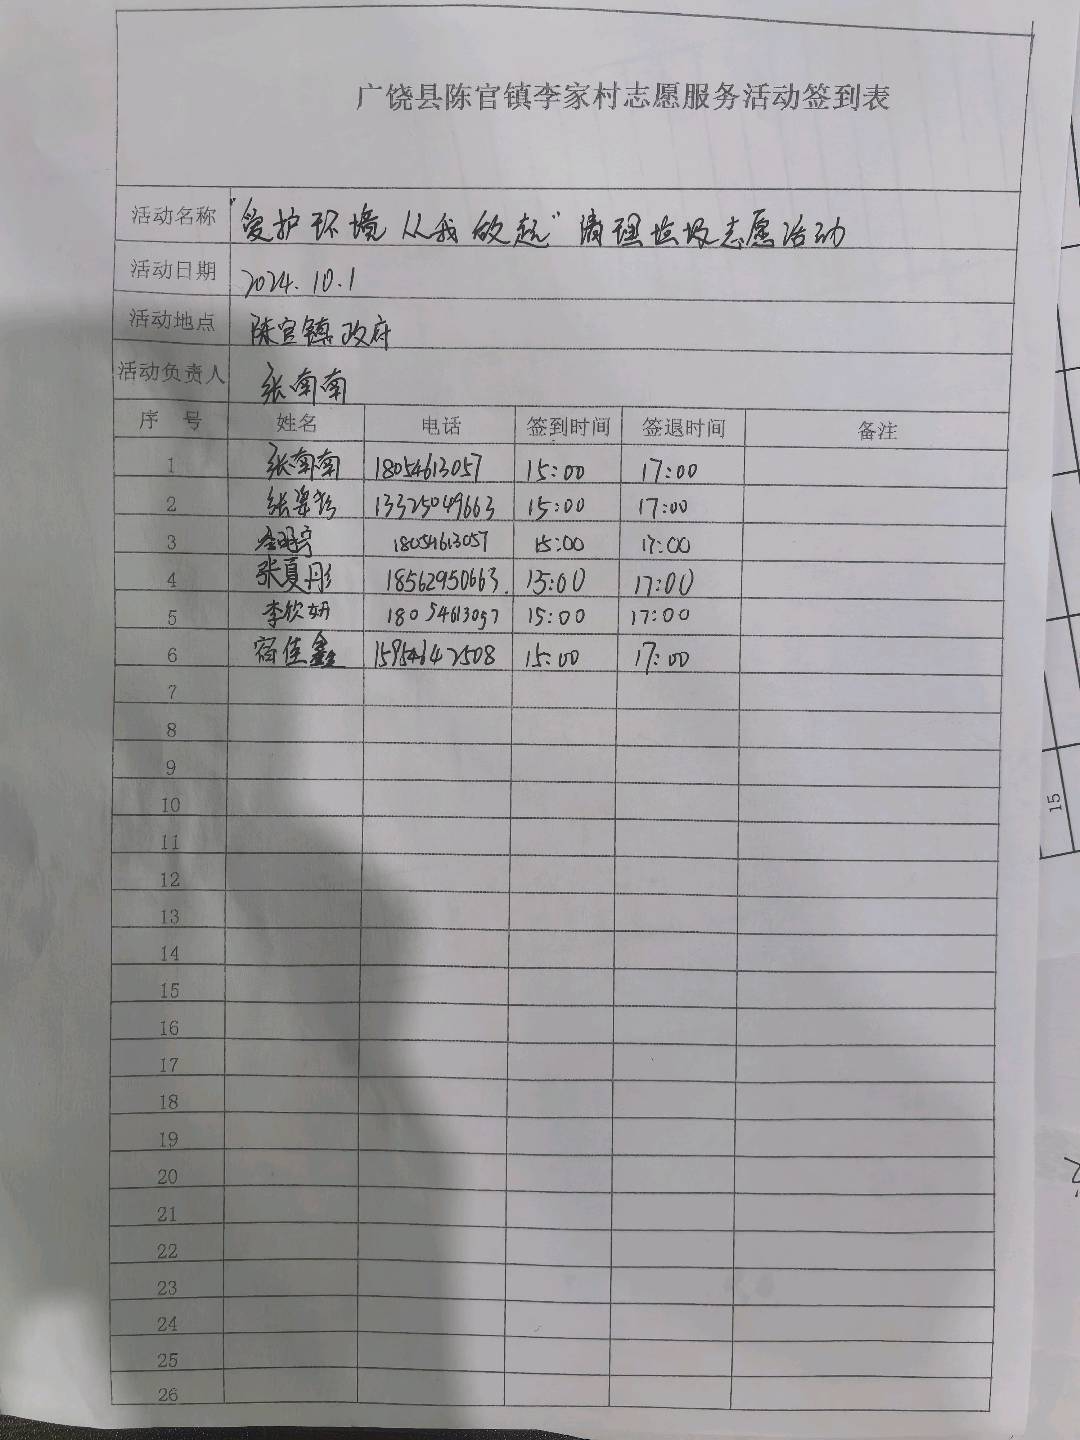 广饶县陈官镇李家村志愿服务活动签到表
活动名称 "爱护环境 从我做起"清理垃圾志愿活动
活动日期 2024.10.1
活动地点 陈官镇政府
活动负责人 张南南
序 号 姓名 电话 签到时间 签退时间 备注
1 张南南 18054613057 15:00 17:00
2 张 13325049663 15:00 17:00
3 18054613057 15:00 17:00
4 张夏彤 18562950663. 15:00 17:00
5 李欣妍 18054613057 15:00 17:00
6 宿佳鑫 15954642508 15:00 17:00
7
8
9
10
11
12
13
14
15
16
17
18
19
20
21
22
23
24
25
26
15